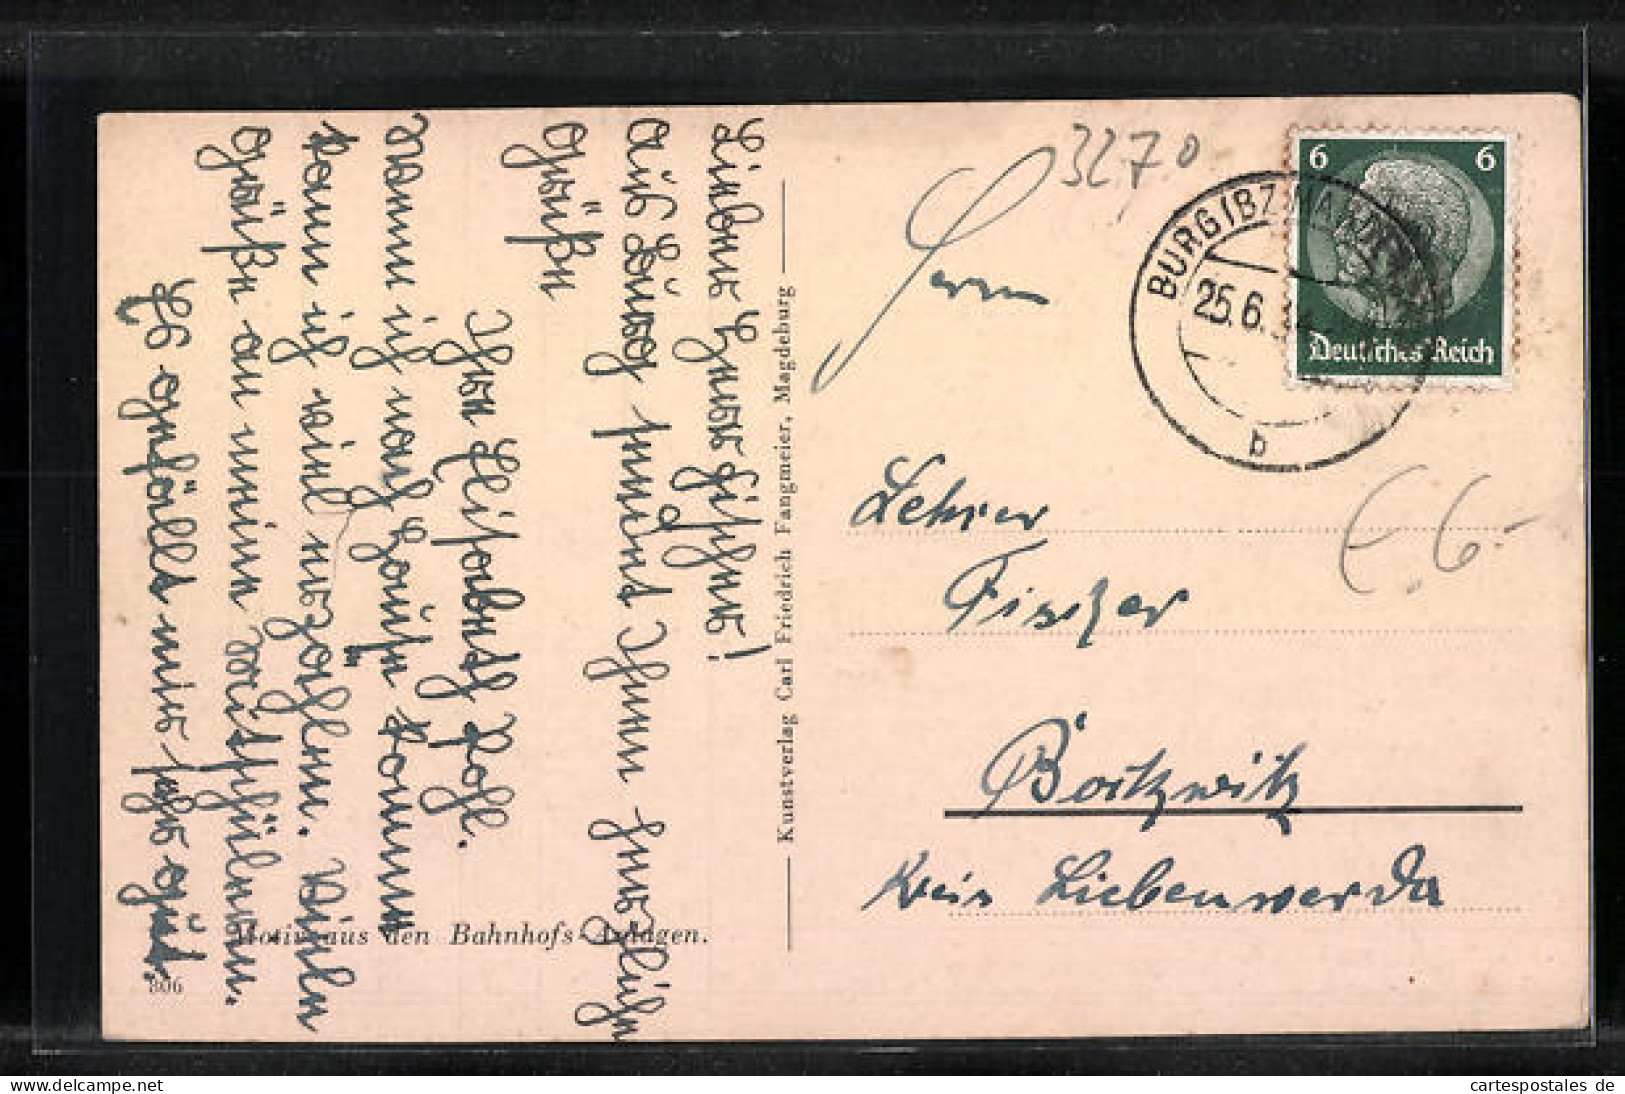 Lieber Herr Fischer!
Aus Burg sendet Ihnen herzliche
Grüße
Ihre Elisabeth Pohl.
Wann ich nach Hause komme
kann ich nicht erzählen. Viele
Grüße an meine Mitschüler.
Es gefällt mir sehr gut.
Motiv aus den Bahnhofs-Anlagen.
306
Kunstverlag Carl Friedrich Fangmeier, Magdeburg
3270
6 6
Deutsches Reich
BURG (BZ MAGDE
25.6.
b
Herrn
Lehrer
Fischer
Borkzwitz
Kreis Liebenwerda
€ 6.-
cartespostales de